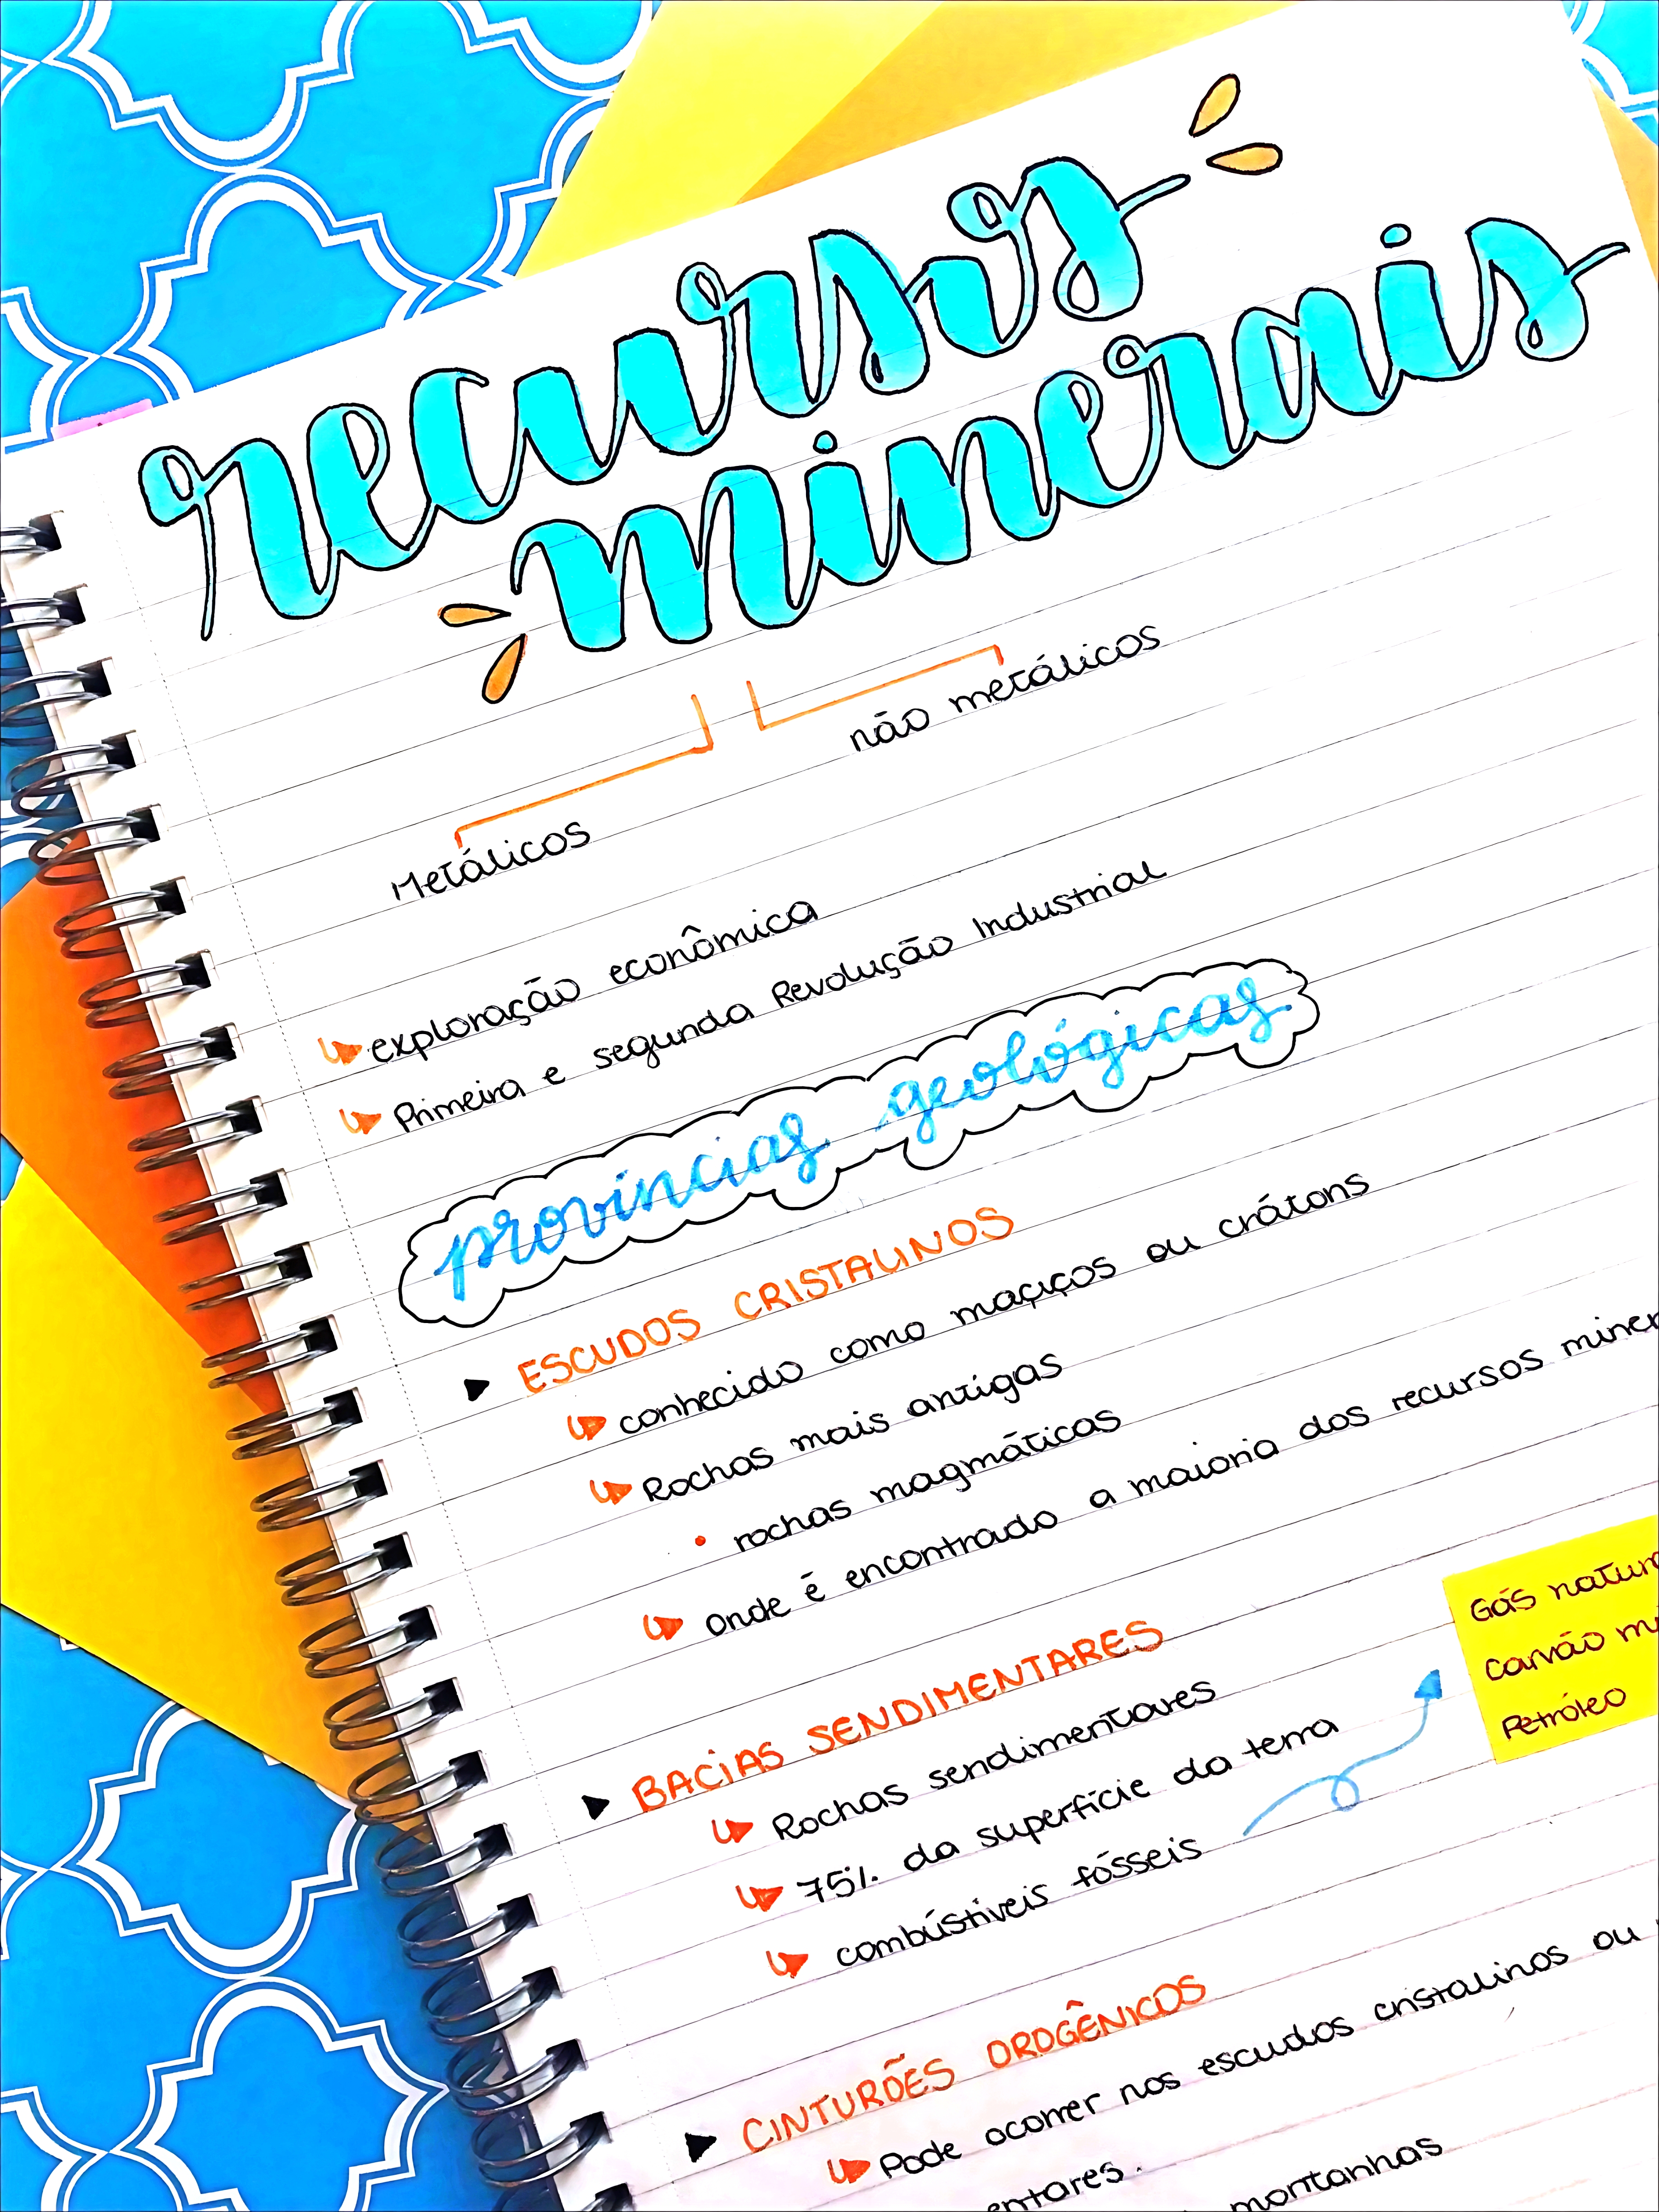 recursos
minerais
não metálicos
Metálicos
exploração econômica
Primeira e segunda Revolução Industrial
províncias geológicas
ESCUDOS CRISTALINOS
conhecido como maçiços ou crátons
Rochas mais antigas
rochas magmáticas
onde é encontrado a maioria dos recursos
BACIAS SENDIMENTARES
Rochas sendimentares
75% da superfície da terra
combústiveis fósseis
Gás
Carvão
Petróleo
CINTURÕES OROGÊNICOS
Pode ocorrer nos escudos cristalinos ou
montanhas